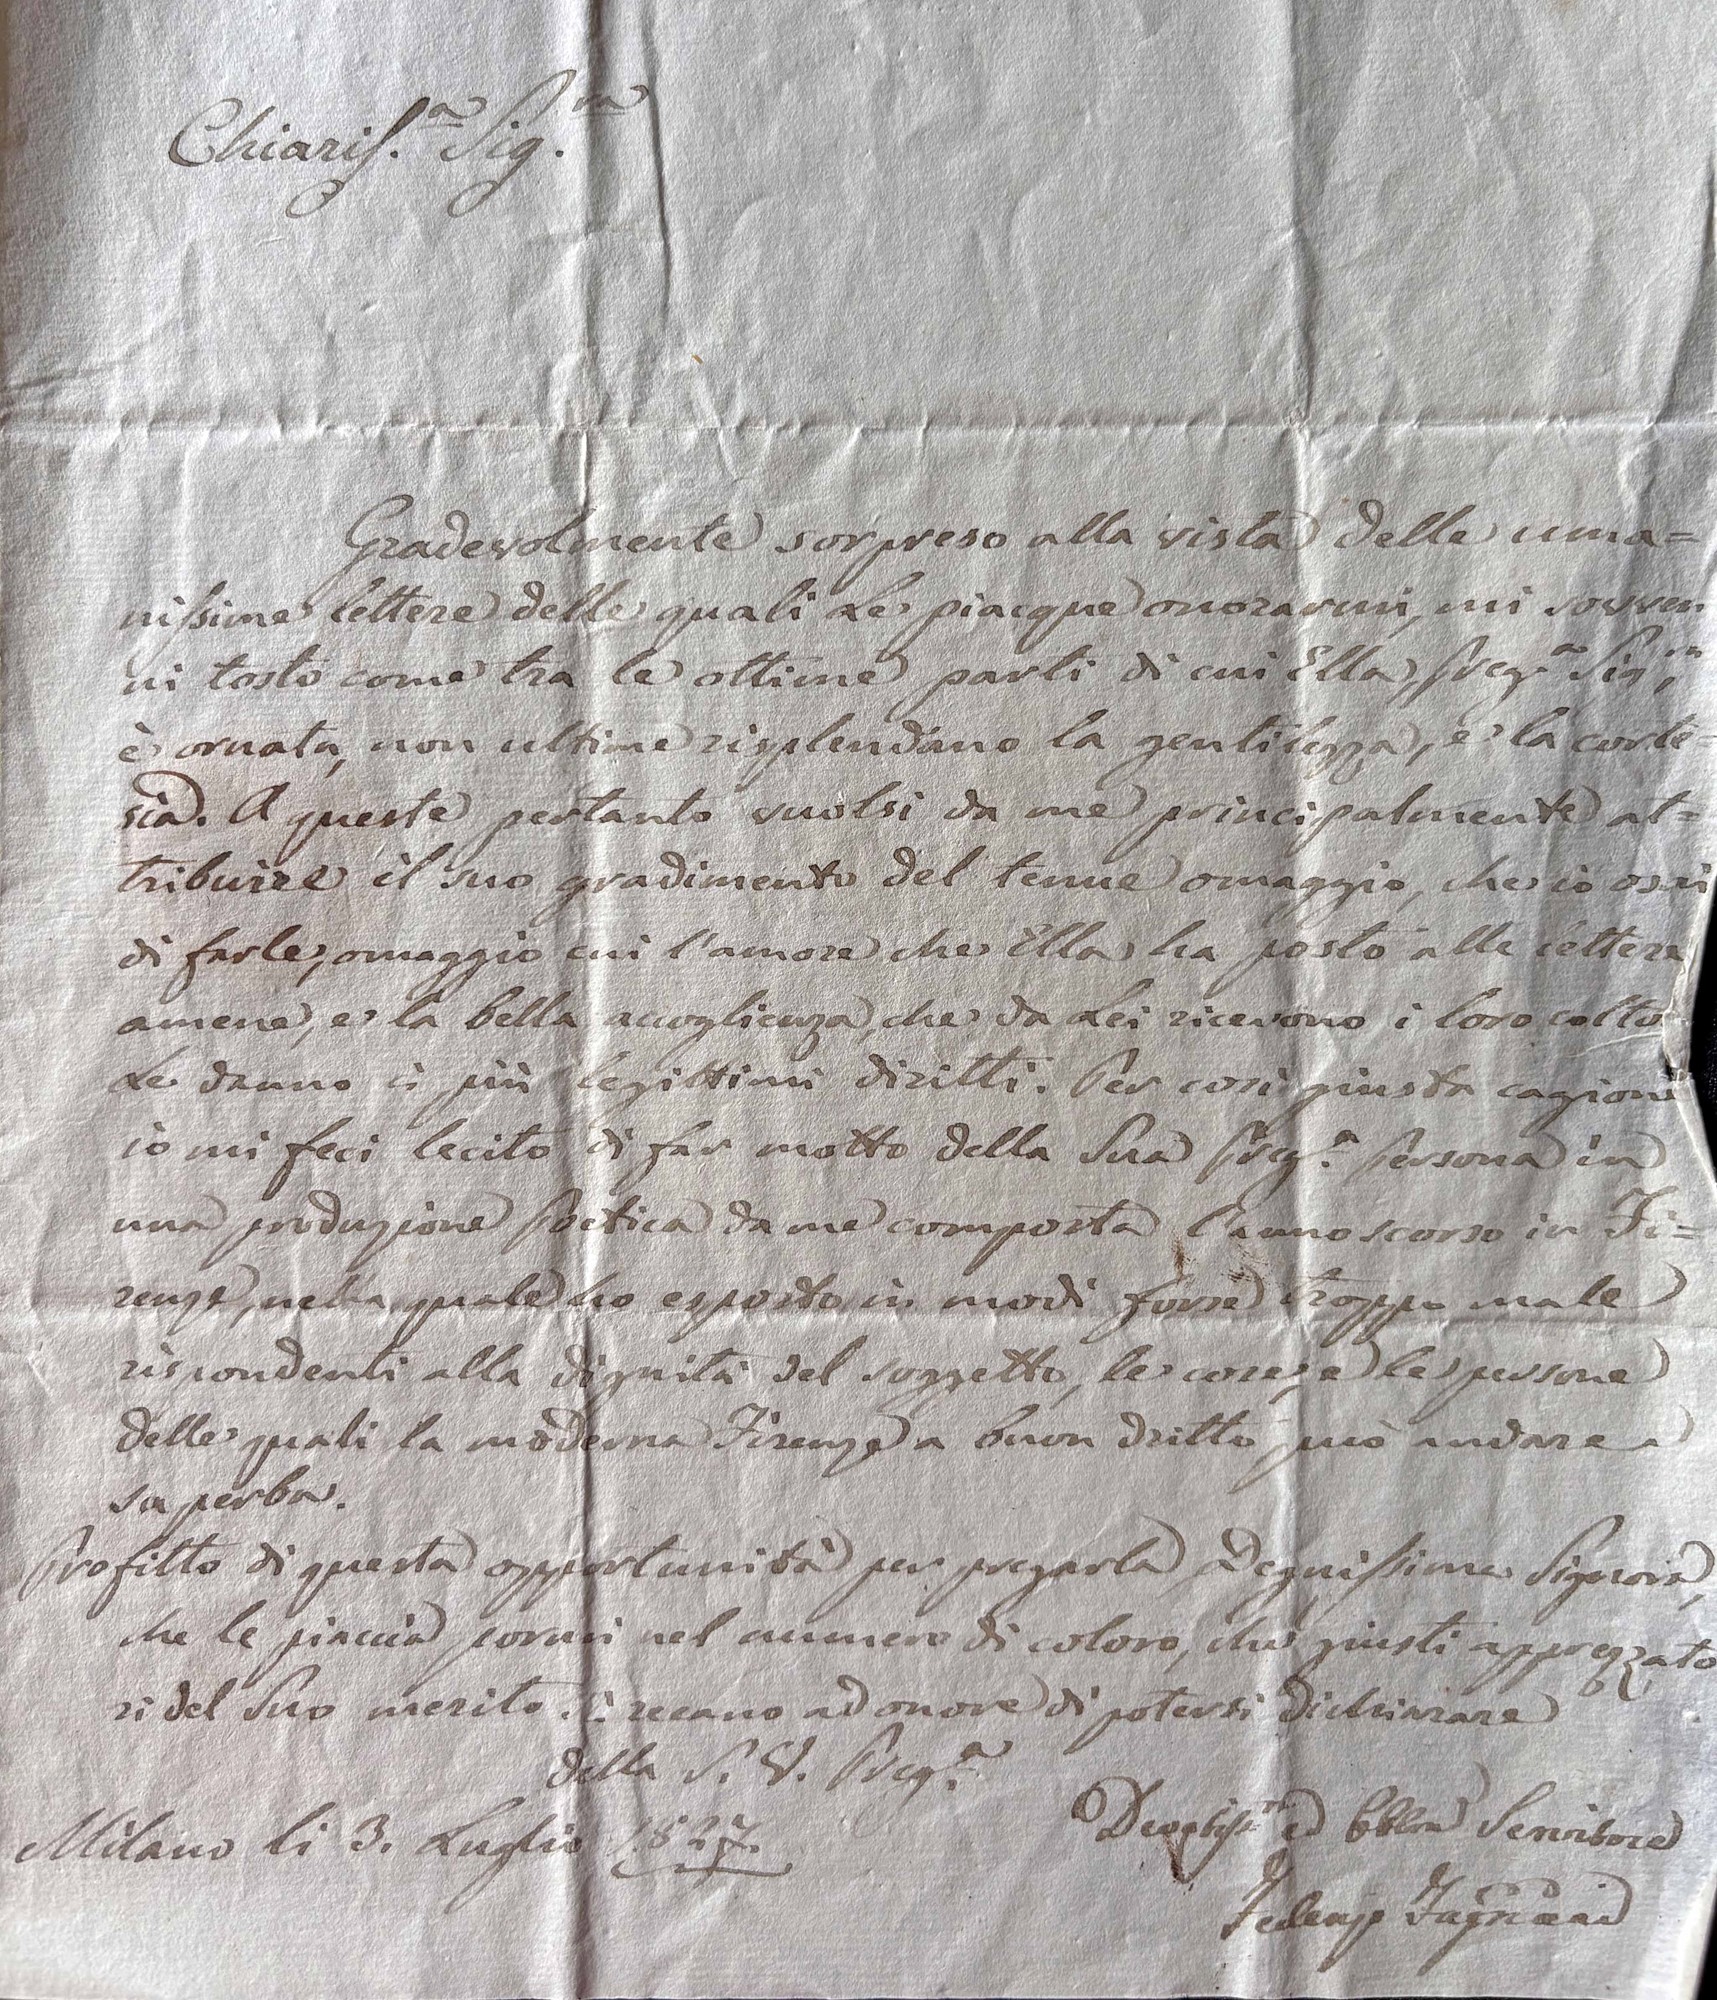 Chiariss.a Sig.ra
Gradevolmente sorpreso alla vista delle uma=
nissime lettere delle quali Le piacque onorarmi, mi sovven
ni tosto come tra le ottime parti di cui Ella, Preg.a Sig.ra,
è ornata, non ultime risplendano la gentilezza, e la corte=
sia. A queste pertanto vuolsi da me principalmente at=
tribuire il suo gradimento del tenue omaggio, che io osai
di farle, omaggio cui l'amore che Ella ha posto alle lettere
amene, e la bella accoglienza, che da Lei ricevono i loro colto
Le danno i più legittimi diritti. Per così giusta cagione
io mi feci lecito di far motto della Sua Preg.a Persona in
una produzione Poetica da me composta l'anno scorso in Fi=
renze, nella quale ho esposto in modi forse troppo male
rispondenti alla dignità del soggetto, le cose, e le persone
delle quali la moderna Firenze a buon dritto può andare
superba.
Profitto di questa opportunità per pregarla Degnissima Signora,
che le piaccia pormi nel numero di coloro, che giusti apprezzato
ri del Suo merito si recano ad onore di potersi dichiarare
della S. V. Preg.a
Milano li 3. Luglio 1827.
ed Servitore
Fagnani